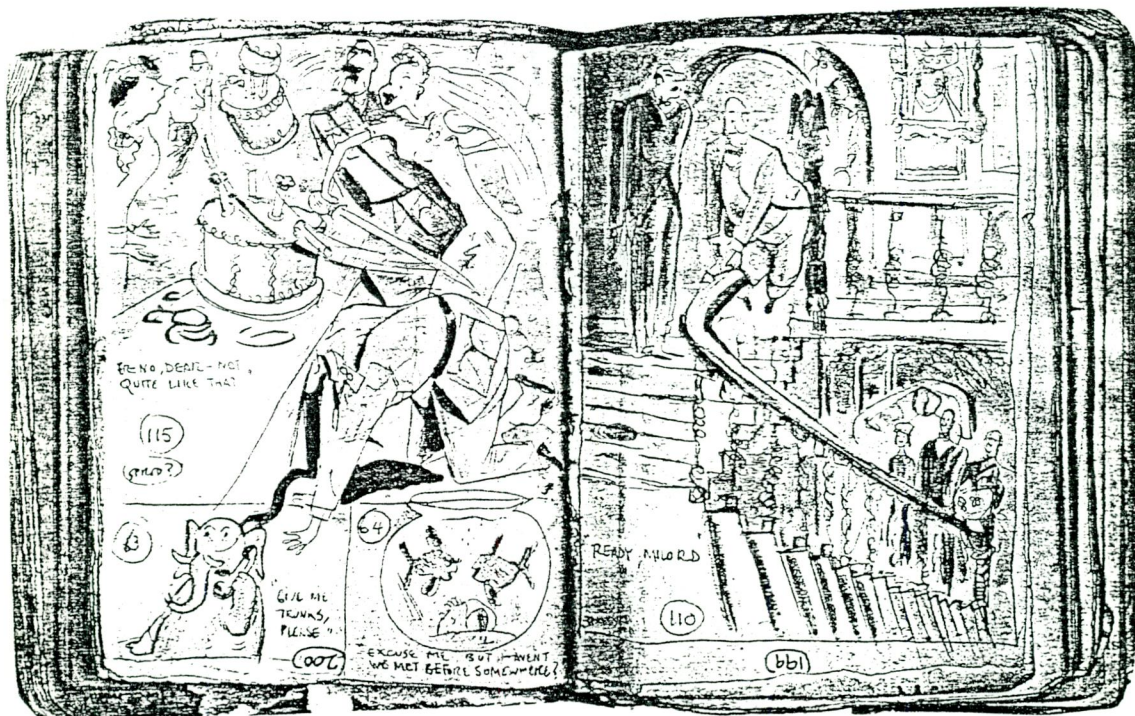 ER NO, DEAR - NOT
QUITE LIKE THAT
115
63
"GIVE ME
TRUNKS,
PLEASE"
200
64
EXCUSE ME BUT HAVENT
WE MET BEFORE SOMEWHERE?
READY, MILORD
110
199